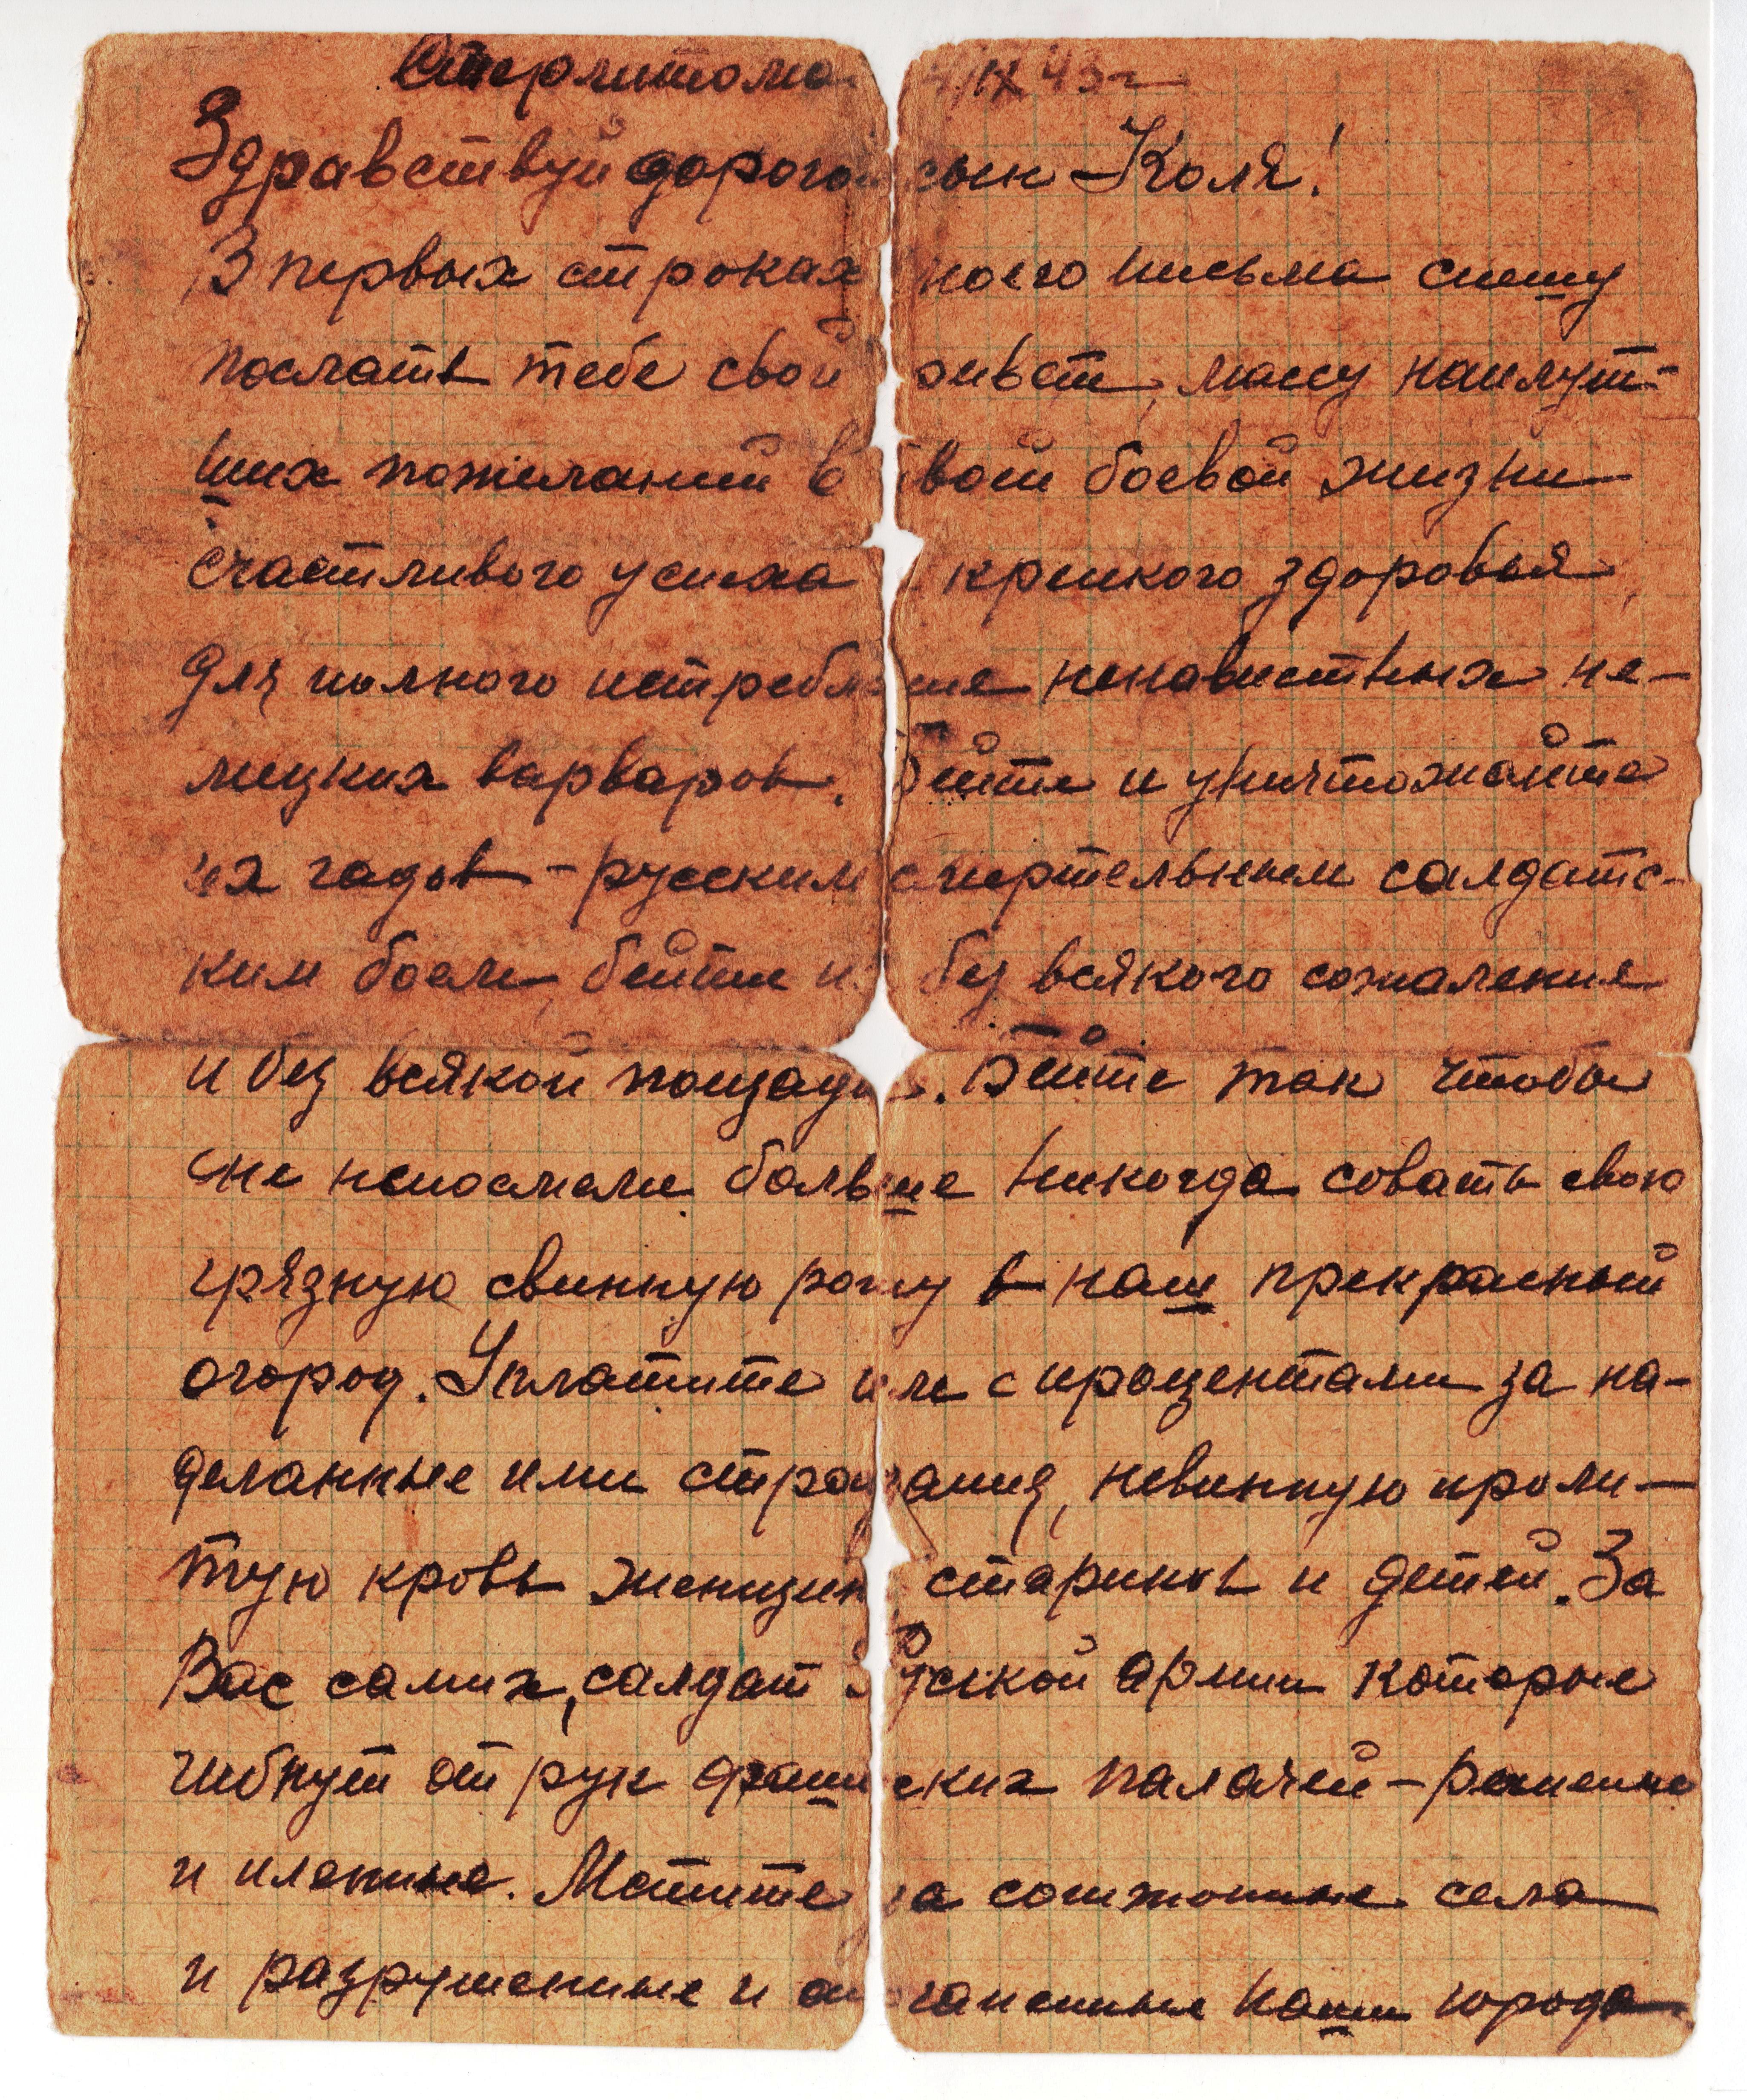 Стерлитама 4/IX 43 г
Здравствуй дорогой сын – Коля!
В первых строках моего письма спешу
послать тебе свой привет, массу наилут-
ших пожеланий в твоей боевой жизни
счастливого успеха и крепкого здоровья,
для полного истребление ненавистных не-
мецких варваров. Бейте и уничтожайте
их гадов – русским смертельным салдатс-
ким боем, бейте их без всякого сожаления
и без всякой пощады. Бейте так чтобы
они непосмели больше никогда совать свою
грязную свинную рожу в наш прекрасный
огород. Уплатите им с процентами за на-
деланные ими страдания, невинную проли-
тую кровь женщин, стариков и детей. За
Вас самих, салдат Русской армии которые
гибнут от рук фашиских палачей – раненые
и пленные. Мстите за сожжонные села
и разрушенные и опаганенные наши города